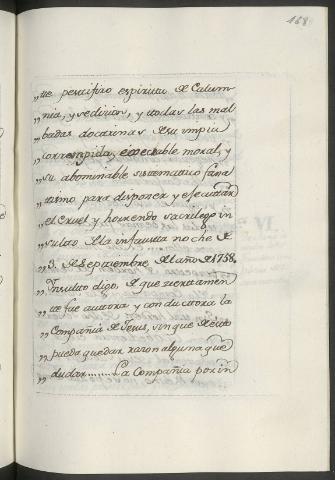 168
„te pestifero espiritu de Calum-
„nia, y sedicion, y todas las mal
„badas doctrinas de su impia
„corrompida, execrable moral, y
„su abominable sistematico fana
„tismo, para disponer y efecutar
„el cruel y horrendo sacrilego in
„sulto de la infausta noche de
„3. de Septiembre del año de 1758.
„Insulto digo, de que ciertamen
„te fue autora y conductora la
„Compañia de Jesus, sin que de esto
„pueda quedar razon alguna que
„dudar........ La Compañia por in